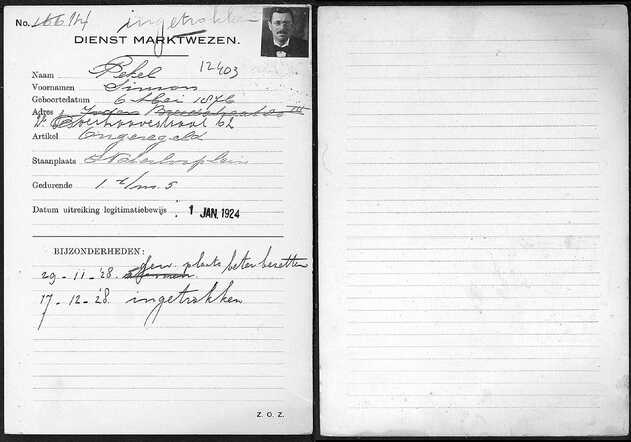 No. 166 M ingetrokken
DIENST MARKTWEZEN.
12403
Naam Pekel
Voornamen Simon
Geboortedatum 6 Mei 1876
Adres Joden Breestraat
62
Artikel Ongeregeld
Staanplaats Waterlooplein
Gedurende 1 t/m. 5
Datum uitreiking legitimatiebewijs : 1 JAN. 1924
BIJZONDERHEDEN:
29-11-'28. gew. plaats beter bezetten
17-12-'28. ingetrokken
Z. O. Z.